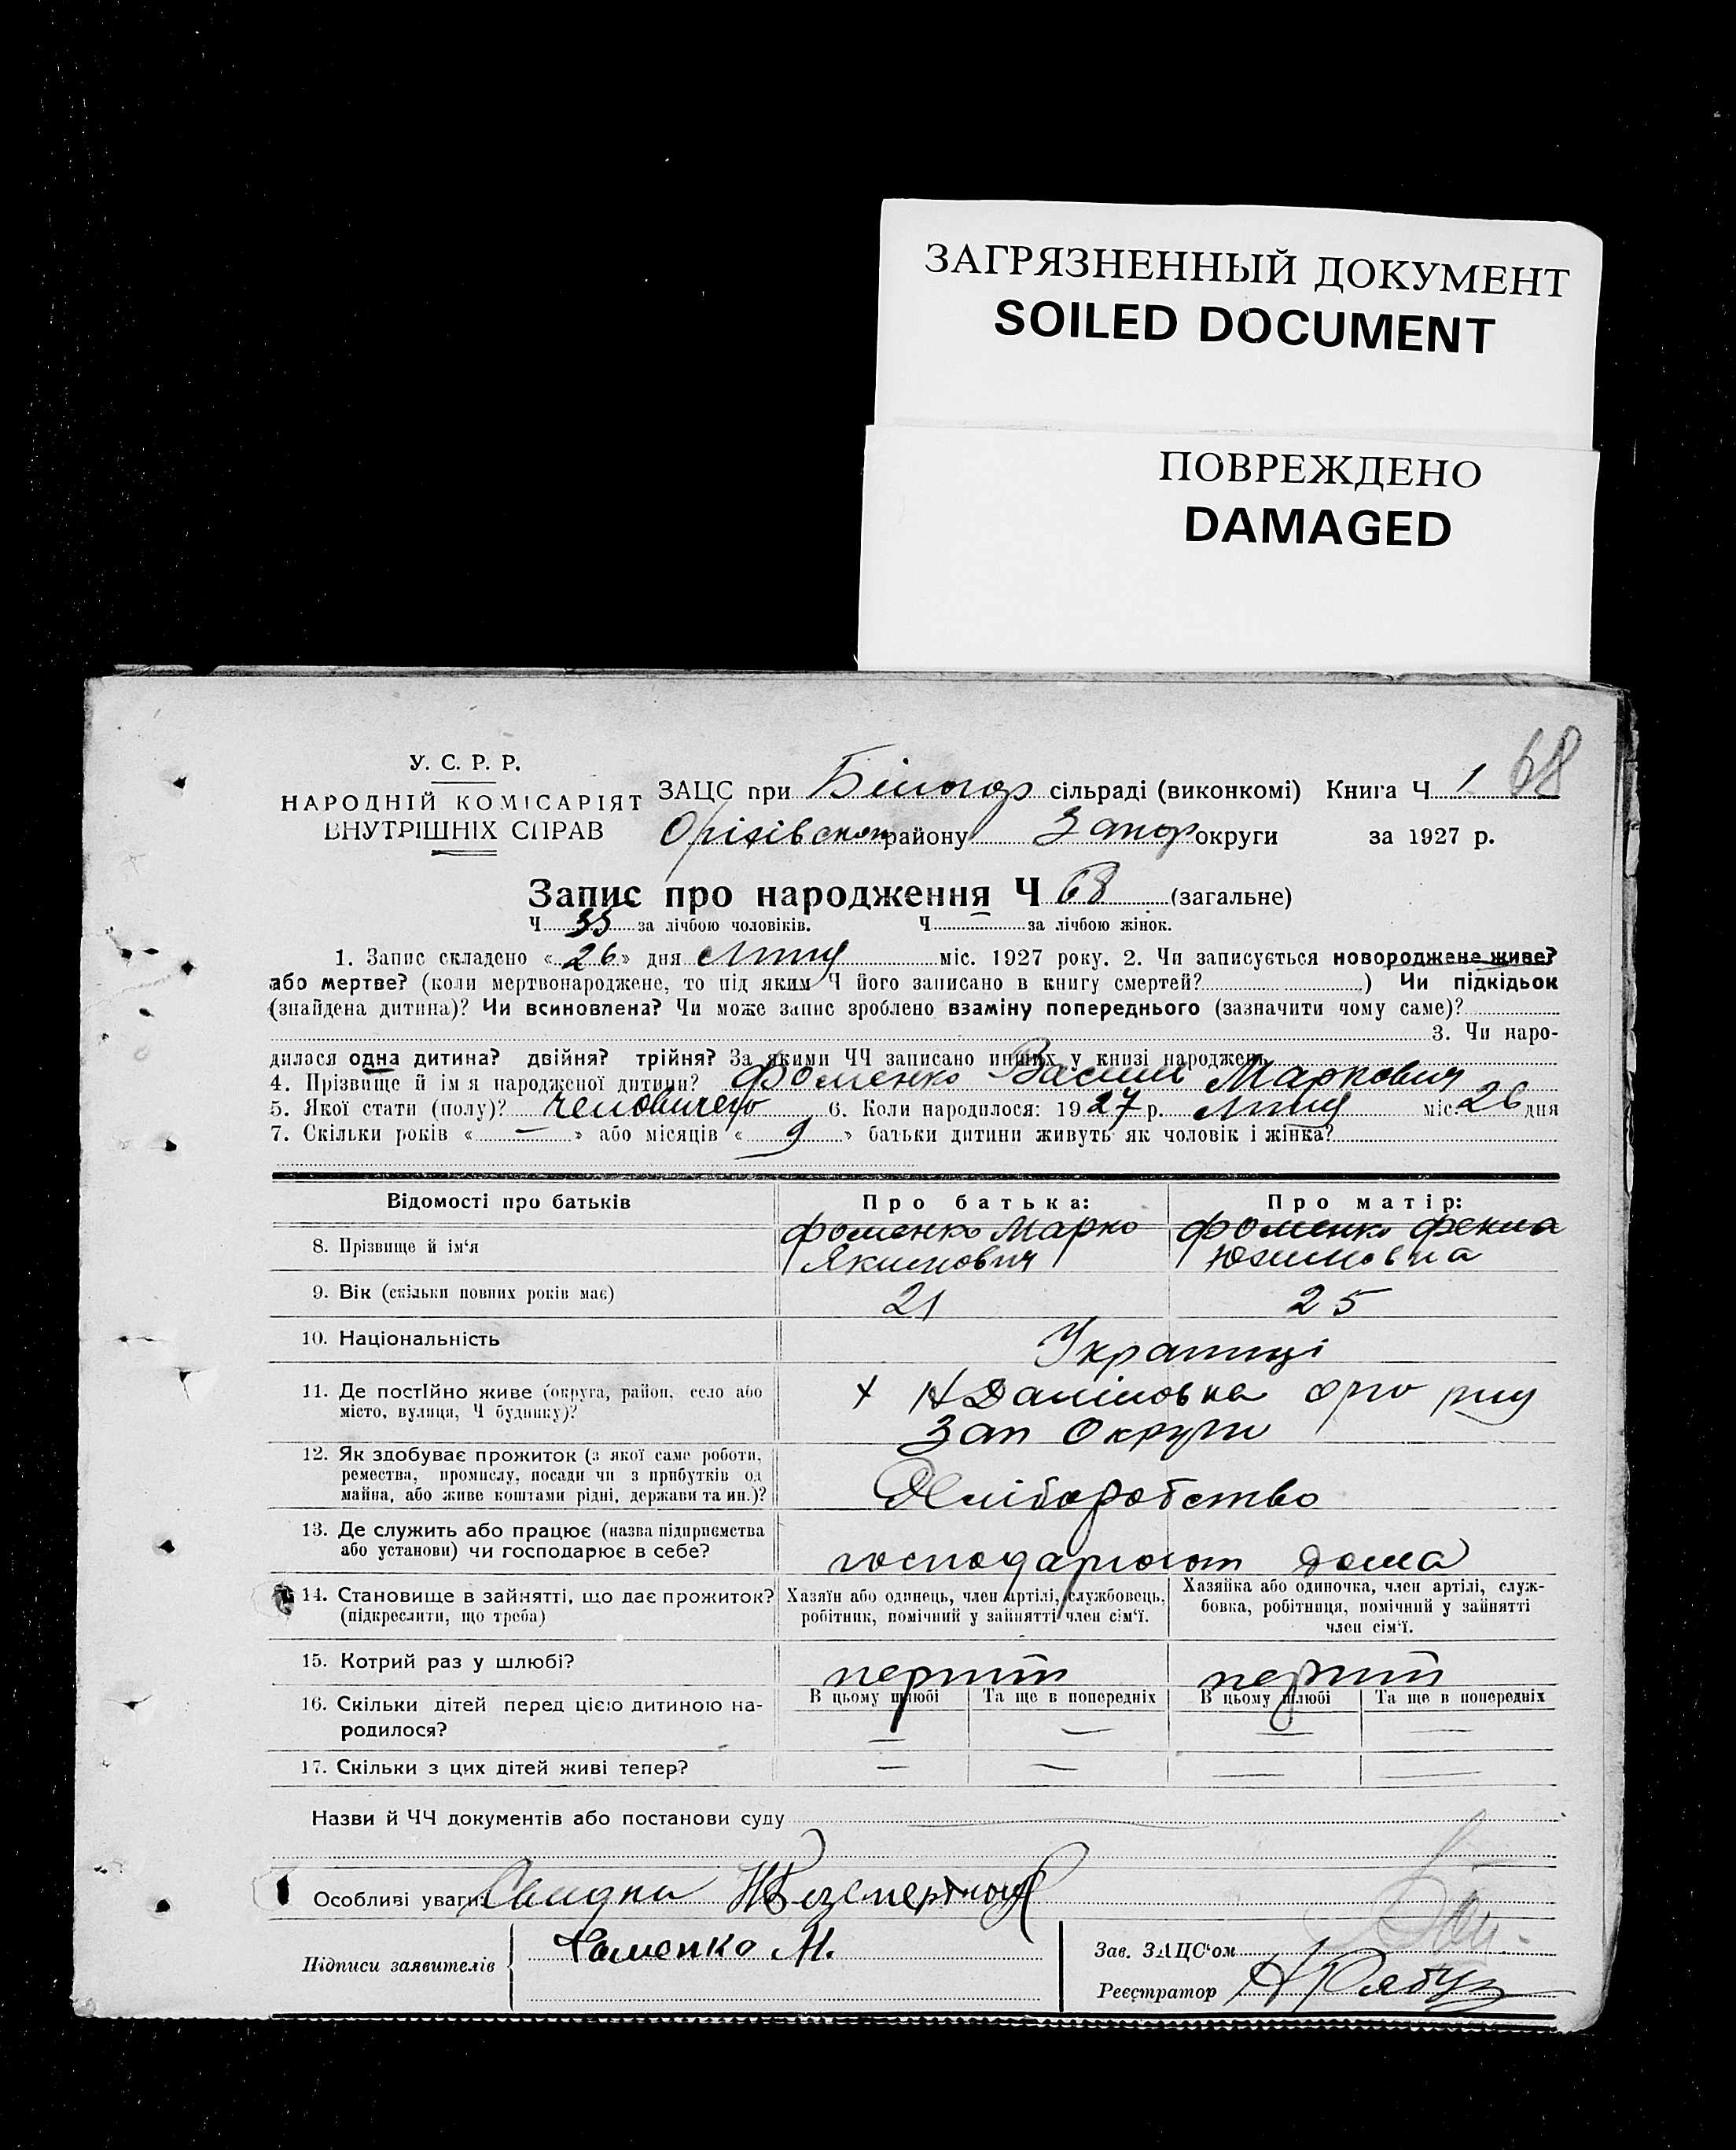 ЗАГРЯЗНЕННЫЙ ДОКУМЕНТ
SOILED DOCUMENT
ПОВРЕЖДЕНО
DAMAGED
68
У. С. Р. Р.
НАРОДНІЙ КОМІСАРІЯТ
ВНУТРІШНІХ СПРАВ
ЗАЦС при Білогор сільраді (виконкомі) Книга Ч 1
Оріхівском району Запор округи за 1927 р.
Запис про народження Ч 68 (загальне)
Ч 35 за лічбою чоловіків. Ч — за лічбою жінок.
1. Запис складено « 26 » дня міс. 1927 року. 2. Чи записується новороджене живе?
або мертве? (коли мертвонароджене, то під яким Ч його записано в книгу смертей? ) Чи підкідьок
(знайдена дитина)? Чи всиновлена? Чи може запис зроблено взаміну попереднього (зазначити чому саме)?
3. Чи наро-
дилася одна дитина? двійня? трійня? За якими ЧЧ записано инших у книзі народжень
4. Прізвище й ім'я народженої дитини? Фоменко Василь Маркович
5. Якої стати (полу)? 6. Коли народилося: 1927 р. міс. 26 дня
7. Скільки років « — » або місяців « 9 » батьки дитини живуть як чоловік і жінка?
Відомості про батьків Про батька: Про матір:
8. Прізвище й ім'я Фоменко Марко Якимович Фоменко Фекла Юхимовна
9. Вік (скільки повних років має) 21 25
10. Національність Українці
11. Де постійно живе (округа, район, село або
місто, вулиця, Ч будинку)?
х Н Даніловка
Зап Округи
12. Як здобуває прожиток (з якої саме роботи,
ремества, промислу, посади чи з прибутків од
майна, або живе коштами рідні, держави та ин.)?
Хліборобство
13. Де служить або працює (назва підприємства
або установи) чи господарює в себе?
господарюют дома
14. Становище в зайнятті, що дає прожиток?
(підкреслити, що треба)
Хазяїн або одинець, член артілі, службовець,
робітник, помічний у зайнятті член сім'ї.
Хазяйка або одиночка, член артілі, служ-
бовка, робітниця, помічний у зайнятті
член сім'ї.
15. Котрий раз у шлюбі? перший перший
16. Скільки дітей перед цією дитиною на-
родилося?
В цьому шлюбі Та ще в попередніх В цьому шлюбі Та ще в попередніх
— — — —
17. Скільки з цих дітей живі тепер? — — — —
Назви й ЧЧ документів або постанови суду
Особливі уваги:
Підписи заявителів Хоменко М.
Зав. ЗАЦС'ом
Реєстратор